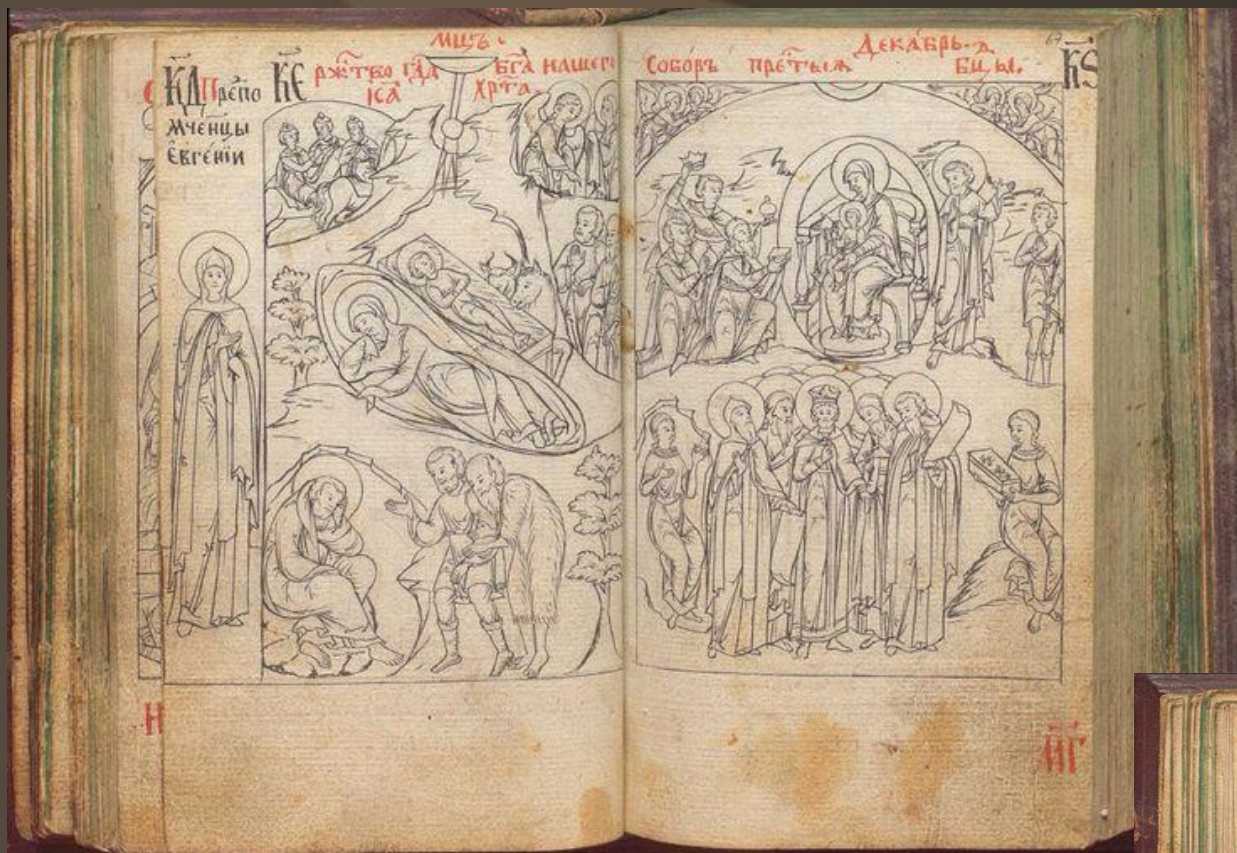 мц҃ъ.
К҃Д Препо
мч҃енцы
Евге́нїи
К҃Е рж҃тво гд҃а бг҃а нашего
іс҃а хр҃та.
Декабрь.
67
Собо́ръ пре҃тыѧ бц҃ы. К҃Ѕ
Н
М҃Г